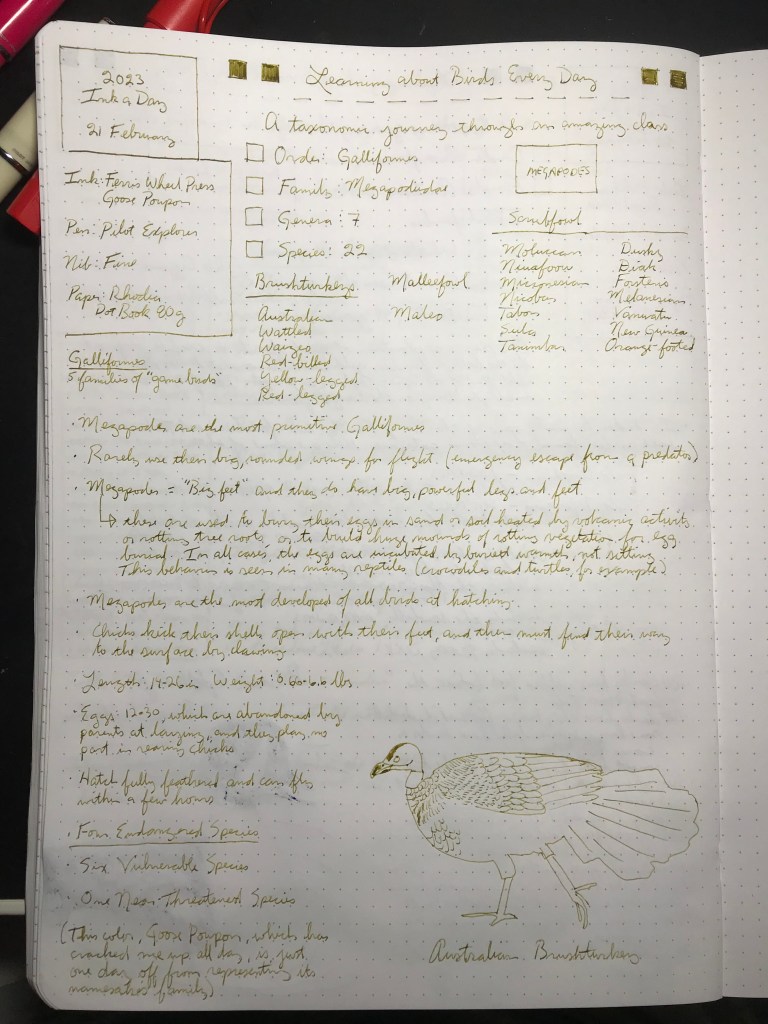 2023
Ink a Day
21 February
Learning about Birds Every Day
A taxonomic journey through an amazing class
Ink: Ferris Wheel Press
Goose Poupon
Pen: Pilot Explorer
Nib: Fine
Paper: Rhodia
Dot Book 80g
Order: Galliformes
Family: Megapodiidae
Genera: 7
Species: 22
MEGAPODES
Brushturkeys
Australian
Wattled
Waigeo
Red-billed
Yellow-legged
Red-legged
Malleefowl
Maleo
Scrubfowl
Moluccan
Niuafoou
Micronesian
Nicobar
Tabon
Sula
Tanimbar
Dusky
Biak
Forsten's
Melanesian
Vanuatu
New Guinea
Orange-footed
Galliformes
5 families of "game birds"
· Megapodes are the most primitive Galliformes
· Rarely use their big, rounded wings for flight (emergency escape from a predator)
· Megapodes = "Big feet" and they do have big, powerful legs and feet.
↳ these are used to bury their eggs in sand or soil heated by volcanic activity
or rotting tree roots, or to build huge mounds of rotting vegetation for egg
burial. In all cases, the eggs are incubated by buried warmth, not sitting.
This behavior is seen in many reptiles (crocodiles and turtles, for example)
· Megapodes are the most developed of all birds at hatching.
· Chicks kick their shells open with their feet, and then must find their way
to the surface by clawing.
· Length: 14-26in Weight: 0.60-6.6 lbs
· Eggs: 12-30, which are abandoned by
parents at laying, and they play no
part in rearing chicks
· Hatch fully feathered and can fly
within a few hours
· Four Endangered Species
· Six Vulnerable Species
· One Near-Threatened Species
(This color, Goose Poupon, which has
cracked me up all day, is just
one day off from representing its
namesake's family)
Australian Brushturkey